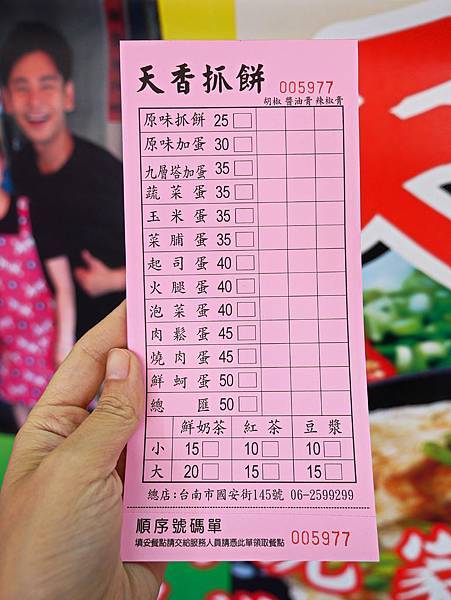 天香抓餅
005977
胡椒 醬油膏 辣椒膏
原味抓餅 25
原味加蛋 30
九層塔加蛋 35
蔬菜蛋 35
玉米蛋 35
菜脯蛋 35
起司蛋 40
火腿蛋 40
泡菜蛋 40
肉鬆蛋 45
燒肉蛋 45
鮮蚵蛋 50
總匯 50
鮮奶茶 紅茶 豆漿
小 15 10 10
大 20 15 15
總店:台南市國安街145號 06-2599299
順序號碼單
填妥餐點請交給服務人員請憑此單領取餐點
005977